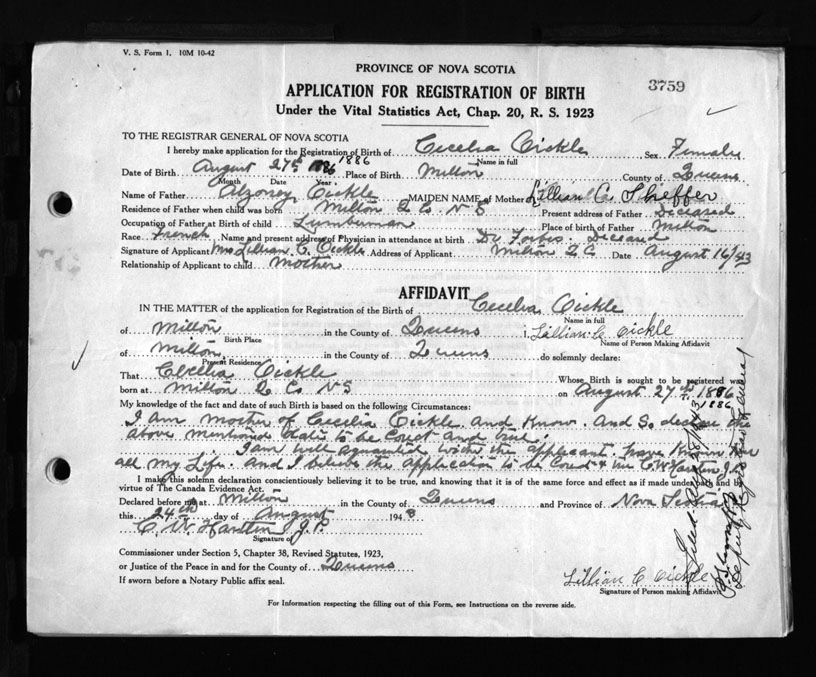 V. S. Form 1. 10M 10-42
PROVINCE OF NOVA SCOTIA
3759
APPLICATION FOR REGISTRATION OF BIRTH
Under the Vital Statistics Act, Chap. 20, R. S. 1923
TO THE REGISTRAR GENERAL OF NOVA SCOTIA
I hereby make application for the Registration of Birth of Cecelia Oickle Sex Female
Name in full
Date of Birth August 27th 1886 1886 Place of Birth Milton County of Queens
Month Date Year
Name of Father Oickle MAIDEN NAME of Mother Lillian C.
Residence of Father when child was born Milton Q Co. N S Present address of Father Deceased
Occupation of Father at Birth of child Lumberman Place of birth of Father Milton
Race French Name and present address of Physician in attendance at birth Dr Forbes. Deceased
Signature of Applicant Mrs Lillian C. Oickle Address of Applicant Milton Q C Date August 16/43
Relationship of Applicant to child mother
AFFIDAVIT
IN THE MATTER of the application for Registration of the Birth of Cecelia Oickle
Name in full
of Milton in the County of Queens I, Lillian C Oickle
Birth Place Name of Person Making Affidavit
of Milton in the County of Queens do solemnly declare:
Present Residence
That Cecelia Oickle Whose Birth is sought to be registered was
born at Milton Q Co N S on August 27th 1886
1886
My knowledge of the fact and date of such Birth is based on the following Circumstances:
I am mother of Cecelia Oickle and Know. And So declare the
above mentioned date to be Corect and true.
I am well aquanted with the applicant. have Known her
all my Life. and I believe the application to be Corect & true C. W. Hartlin J.P.
I make this solemn declaration conscientiously believing it to be true, and knowing that it is of the same force and effect as if made under oath and by
virtue of The Canada Evidence Act.
Declared before me at Milton in the County of Queens and Province of Nova Scotia
this 24th day of August 1943
C. W. Hartlin J.P.
Signature of
Commissioner under Section 5, Chapter 38, Revised Statutes, 1923,
or Justice of the Peace in and for the County of Queens
If sworn before a Notary Public affix seal.
Lillian C Oickle
Signature of Person making Affidavit
For Information respecting the filling out of this Form, see Instructions on the reverse side.
Deputy Registrar General